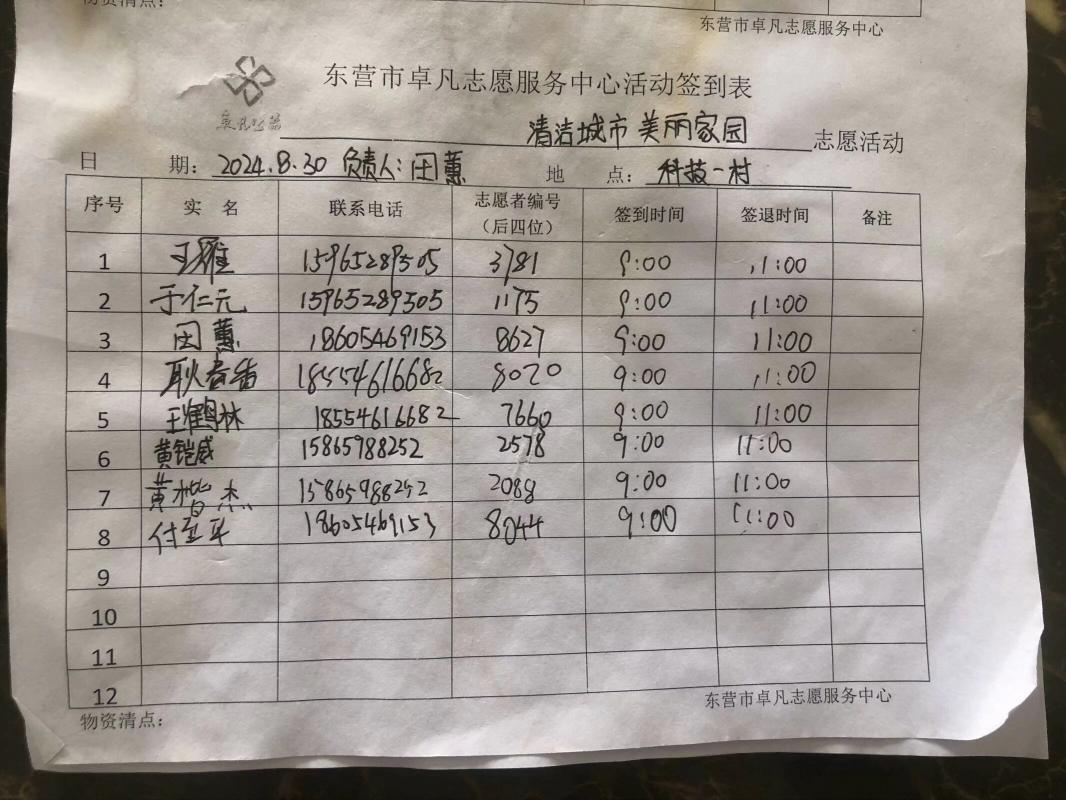 物资清点：
东营市卓凡志愿服务中心
东营市卓凡志愿服务中心活动签到表
清洁城市 美丽家园 志愿活动
日 期：2024.8.30 负责人：田蕙 地 点：科技一村
序号 实 名 联系电话 志愿者编号（后四位） 签到时间 签退时间 备注
1 王耀 15965289505 3781 9:00 11:00
2 于仁元 15965289505 1175 9:00 11:00
3 田蕙 18605469153 8627 9:00 11:00
4 耿春香 18554616682 8020 9:00 11:00
5 王鹤林 18554616682 7660 9:00 11:00
6 黄铠威 15865988252 2578 9:00 11:00
7 黄 杰 15865988252 2088 9:00 11:00
8 付 平 18605469153 8044 9:00 11:00
9
10
11
12
东营市卓凡志愿服务中心
物资清点：